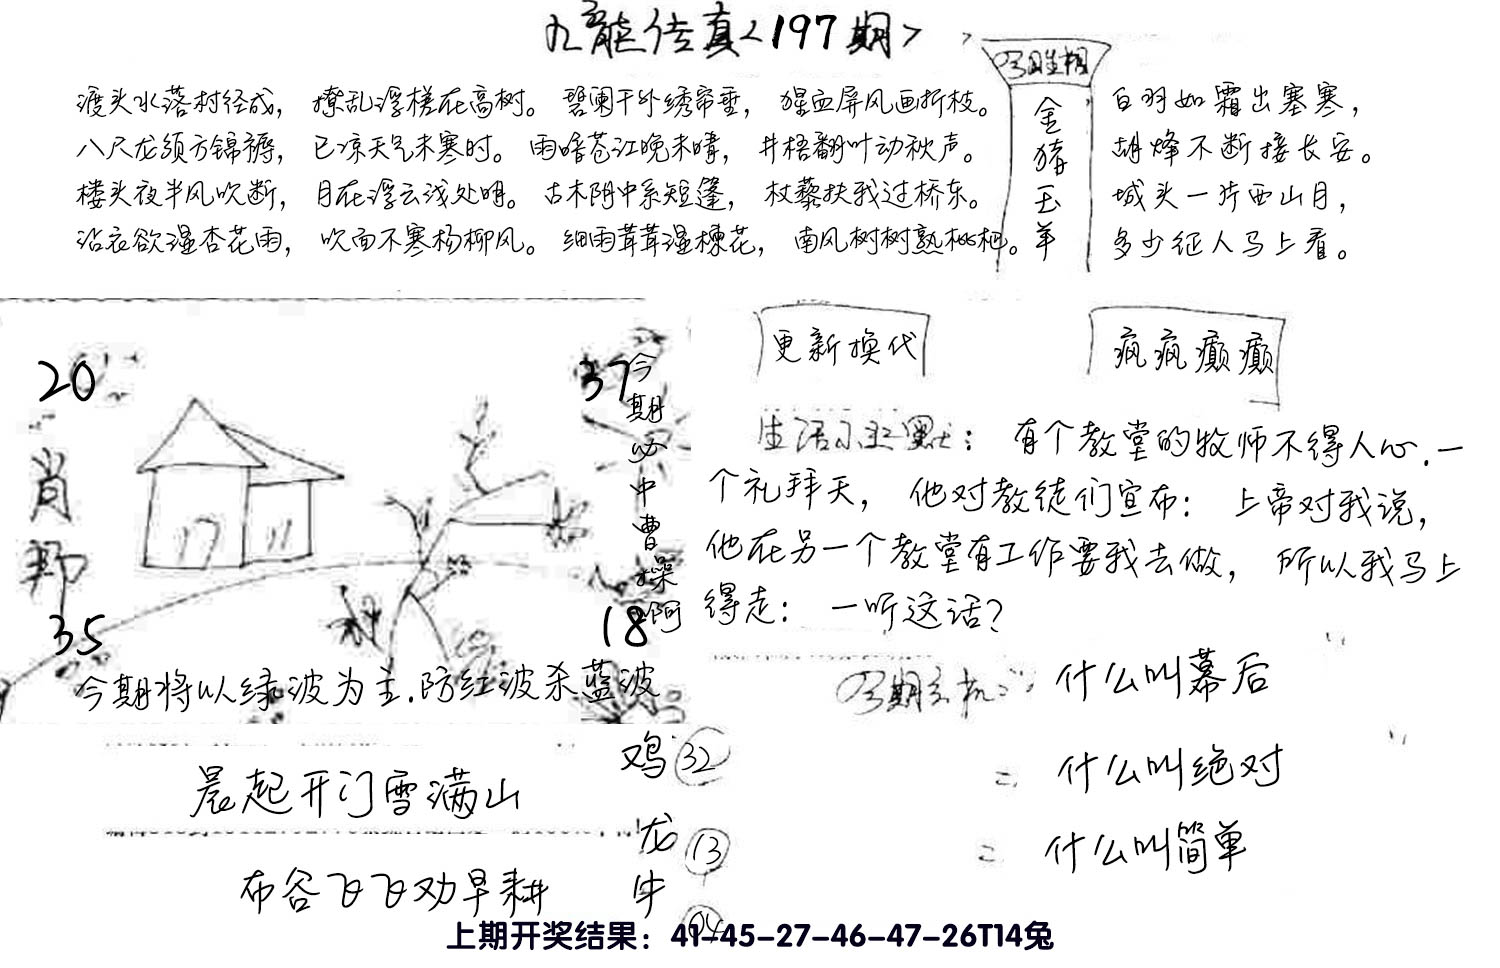 九龙传真<197期>
渡头水落村径成，撩乱浮槎在高树。碧阑干外绣帘垂，猩血屏风画折枝。
八尺龙须方锦褥，已凉天气未寒时。雨暗苍江晚未晴，井梧翻叶动秋声。
楼头夜半风吹断，月在浮云浅处明。古木阴中系短篷，杖藜扶我过桥东。
沾衣欲湿杏花雨，吹面不寒杨柳风。细雨茸茸湿楝花，南风树树熟枇杷。
今期生相
金猪玉羊
白羽如霜出塞寒，
胡烽不断接长安。
城头一片西山月，
多少征人马上看。
20
37
肖
35
18
今期必中曹操啊
今期将以绿波为主.防红波杀蓝波
更新换代
疯疯癫癫
生活小幽默：有个教堂的牧师不得人心.一
个礼拜天，他对教徒们宣布：上帝对我说，
他在另一个教堂有工作要我去做，所以我马上
得走：一听这话？
今期玄机：什么叫幕后
=什么叫绝对
=什么叫简单
晨起开门雪满山
布谷飞飞劝早耕
鸡 32
龙 13
牛 04
上期开奖结果：41-45-27-46-47-26T14兔